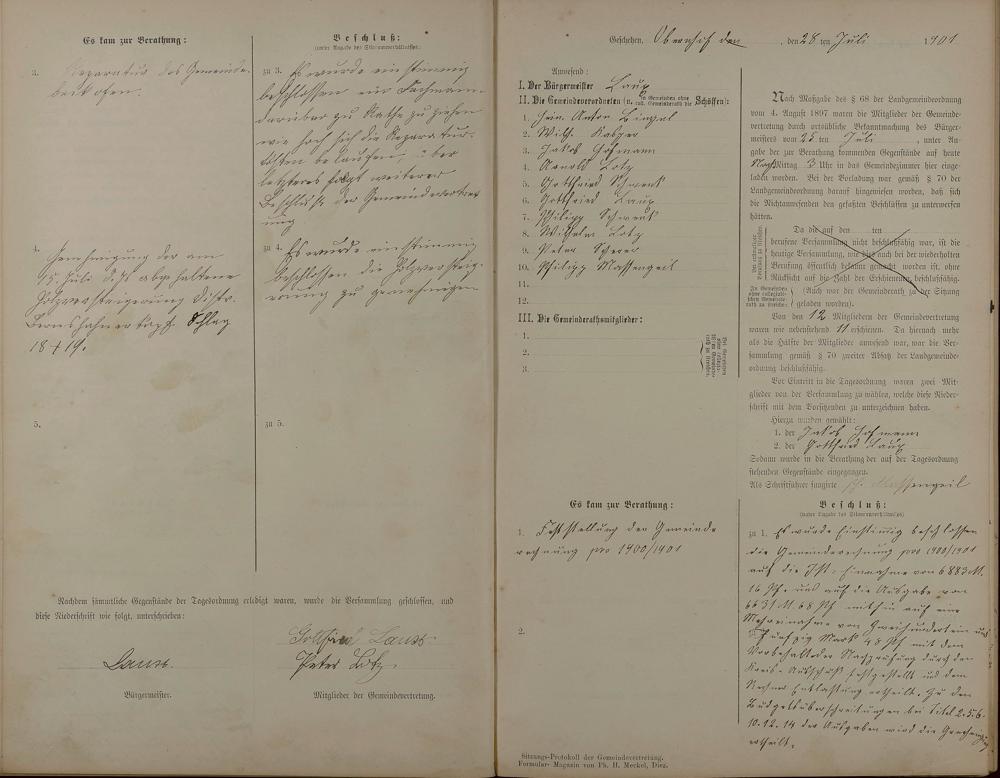 Es kam zur Berathung:
Beschluß:
(unter Angabe des Stimmenverhältnisses)
3. Reparatur des Gemeinde-
backofen.
zu 3. Es wurde einstimmig
beschlossen ein Fachmann
darüber zu Rathe zu ziehen
wie hoch sich die Reparatur-
kosten belaufen, über
letzteres folgt weiterer
Beschluß der Gemeindevertret
ung
4. Genehmigung der am
15. Juli d. Js. abgehaltenen
Holzversteigerung Distr.
18 + 19.
zu 4. Es wurde einstimmig
beschlossen die Holzversteig-
erung zu genehmigen
5.
zu 5.
Nachdem sämmtliche Gegenstände der Tagesordnung erledigt waren, wurde die Versammlung geschlossen, und
diese Niederschrift wie folgt, unterschrieben:
Peter Lotz.
Bürgermeister.
Mitglieder der Gemeindevertretung.
Geschehen, Obernhof den , den 28 ten Juli 1901
Anwesend:
I. Der Bürgermeister Laux
II. Die Gemeindeverordneten (u. in Gemeinden ohne coll. Gemeinderath die Schöffen):
1. Hein. Anton
2. Wilh. Kasper
3. Jakob Hofmann
4. Arnold Lotz
5. Gottfried Schwenk
6. Gottfried Laux
7. Philipp Schwenk
8. Wilhelm Lotz
9. Peter
10. Philipp Massengeil
11.
12.
III. Die Gemeinderathsmitglieder:
1.
2.
3.
Nach Maßgabe des § 68 der Landgemeindeordnung
vom 4. August 1897 waren die Mitglieder der Gemeinde-
vertretung durch ortsübliche Bekanntmachung des Bürger-
meisters vom 25 ten Juli , unter An-
gabe der zur Berathung kommenden Gegenstände auf heute
Nach Mittag 3 Uhr in das Gemeindezimmer hier einge-
laden worden. Bei der Vorladung war gemäß § 70 der
Landgemeindeordnung darauf hingewiesen worden, daß sich
die Nichtanwesenden den gefaßten Beschlüssen zu unterwerfen
hätten.
Da die auf den ten
berufene Versammlung nicht beschlußfähig war, ist die
heutige Versammlung, wie dies auch bei der wiederholten
Berufung öffentlich bekannt gemacht worden ist, ohne
Rücksicht auf die Zahl der Erschienenen beschlußfähig.
(Auch war der Gemeinderath zu der Sitzung
geladen worden).
Von den 12 Mitgliedern der Gemeindevertretung
waren wie nebenstehend 11 erschienen. Da hiernach mehr
als die Hälfte der Mitglieder anwesend war, war die Ver-
sammlung gemäß § 70 zweiter Absatz der Landgemeinde-
ordnung beschlußfähig.
Vor Eintritt in die Tagesordnung waren zwei Mit-
glieder von der Versammlung zu wählen, welche diese Nieder-
schrift mit dem Vorsitzenden zu unterzeichnen haben.
Hierzu wurden gewählt:
1. der Jakob Hofmann
2. der Gottfried Laux
Sodann wurde in die Berathung der auf der Tagesordnung
stehenden Gegenstände eingegangen.
Als Schriftführer fungirte Ph. Massengeil
Es kam zur Berathung:
1. Feststellung der Gemeinde
rechnung pro 1900/1901
2.
Beschluß:
(unter Angabe des Stimmenverhältnisses)
zu 1. Es wurde Einstimmig beschlossen
die Gemeinderechnung pro 1900/1901
auf die Ist-Einnahme von 6883 M.
16 Pf. und auf die Ausgabe von
6631 M. 68 Pf mithin auf eine
Mehreinnahme von Zweihundertein und
Fünfzig Mark 48 Pf mit dem
Vorbehalt der Nachprüfung durch den
Kreis-Ausschuß festgestellt und dem
Rechner Entlastung ertheilt. Zu den
Budgetüberschreitungen bei Titel 2. 5. 6.
10. 12. 14 der Ausgaben wird die Genehmigung
ertheilt.
Sitzungs-Protokoll der Gemeindevertretung.
Formular-Magazin von Ph. H. Meckel, Diez.